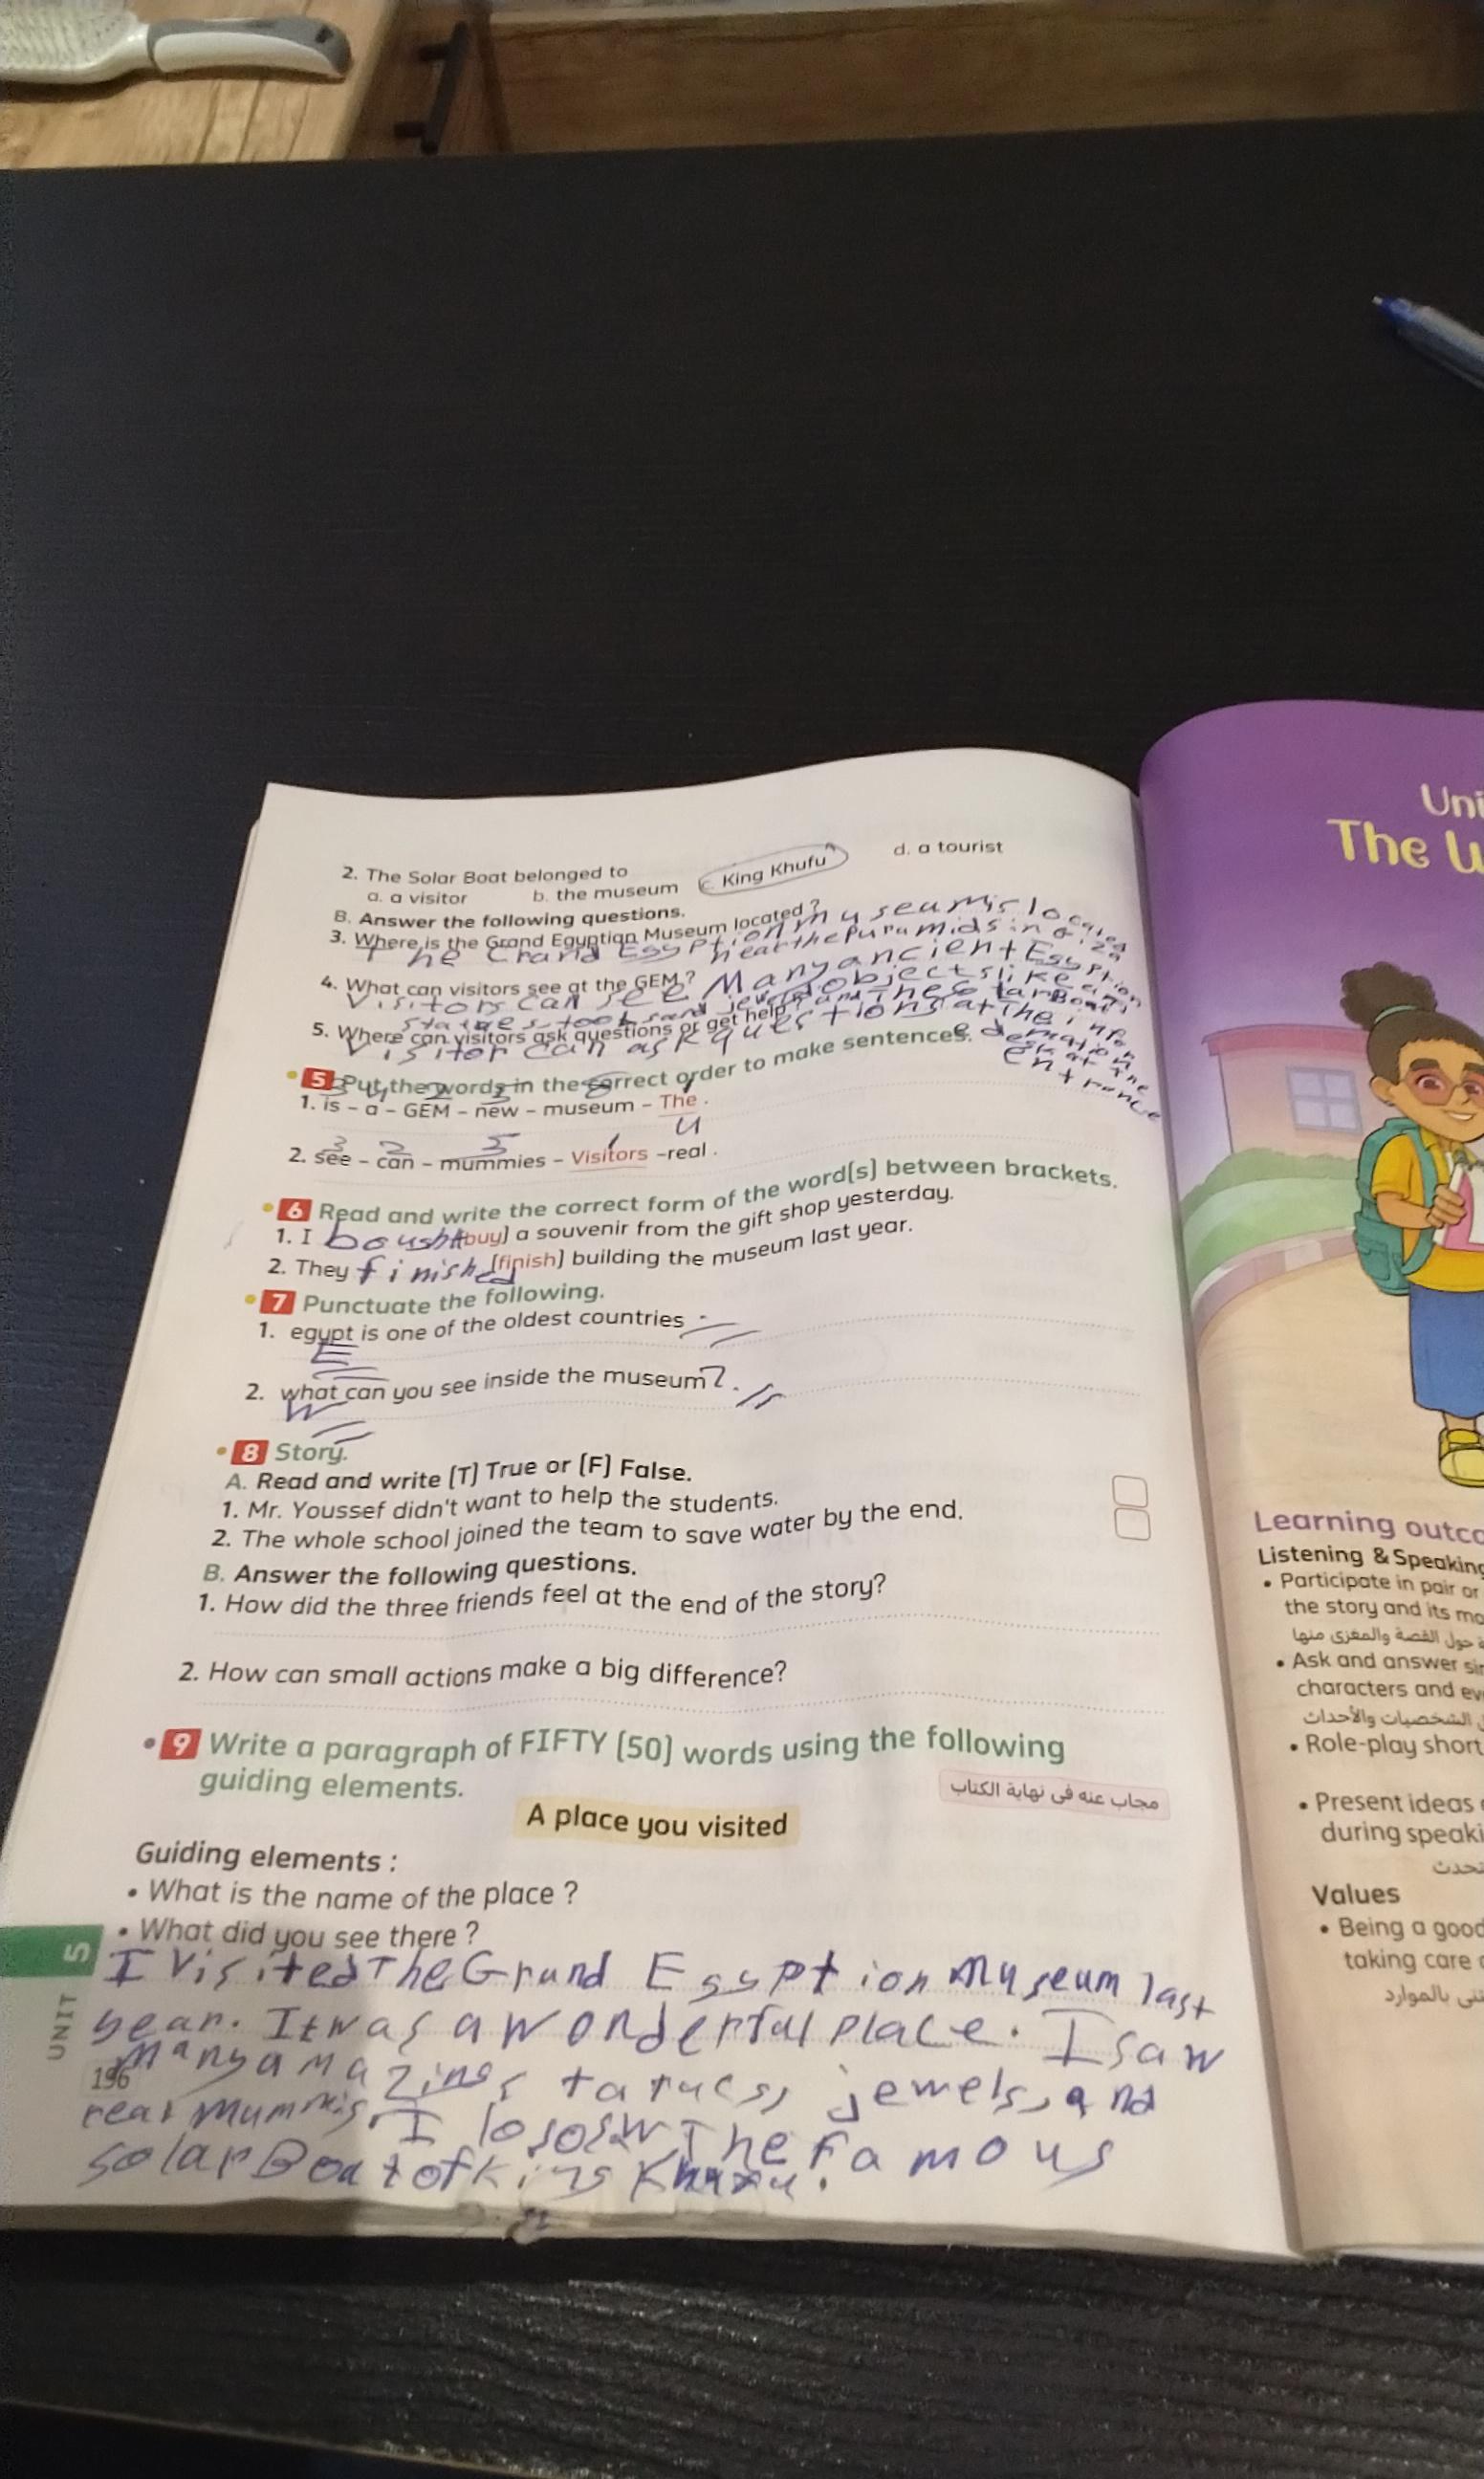 2. The Solar Boat belonged to
a. a visitor b. the museum c. King Khufu d. a tourist
B. Answer the following questions.
3. Where is the Grand Egyptian Museum located?
The Grand Egyption myseum is located
near the Puramids in Giza
4. What can visitors see at the GEM?
Visitors can see Many ancient Egyption
objects like
statues, tools and jewels and The solar Boat
5. Where can visitors ask questions or get help?
Visitor can ask questions at the infor
mation
desk at the
entrance
5 Put the words in the correct order to make sentences.
3 4 2 5 6 1
1. is - a - GEM - new - museum - The .
3 2 5 1 4
2. see - can - mummies - Visitors -real .
6 Read and write the correct form of the word(s) between brackets.
1. I bought (buy) a souvenir from the gift shop yesterday.
2. They finished (finish) building the museum last year.
7 Punctuate the following.
1. egypt is one of the oldest countries .
E
2. what can you see inside the museum ? .
W
8 Story.
A. Read and write (T) True or (F) False.
1. Mr. Youssef didn't want to help the students.
2. The whole school joined the team to save water by the end.
B. Answer the following questions.
1. How did the three friends feel at the end of the story?
2. How can small actions make a big difference?
9 Write a paragraph of FIFTY (50) words using the following
guiding elements.
مجاب عنه فى نهاية الكتاب
A place you visited
Guiding elements :
• What is the name of the place ?
• What did you see there ?
I visited The Grand Egyption Museum last
year. It was a wonderful Place. I saw
Many amazing statues, jewels, and
real Mummis. I also saw The Famous
solar Boat of King Khufu.
UNIT 5
196
Uni
The W
Learning outco
Listening & Speaking
• Participate in pair or
the story and its mo
حول القصة والمغزى منها
• Ask and answer sim
characters and ev
الشخصيات والأحداث
• Role-play short
• Present ideas
during speaki
Values
• Being a good
taking care
بالموارد